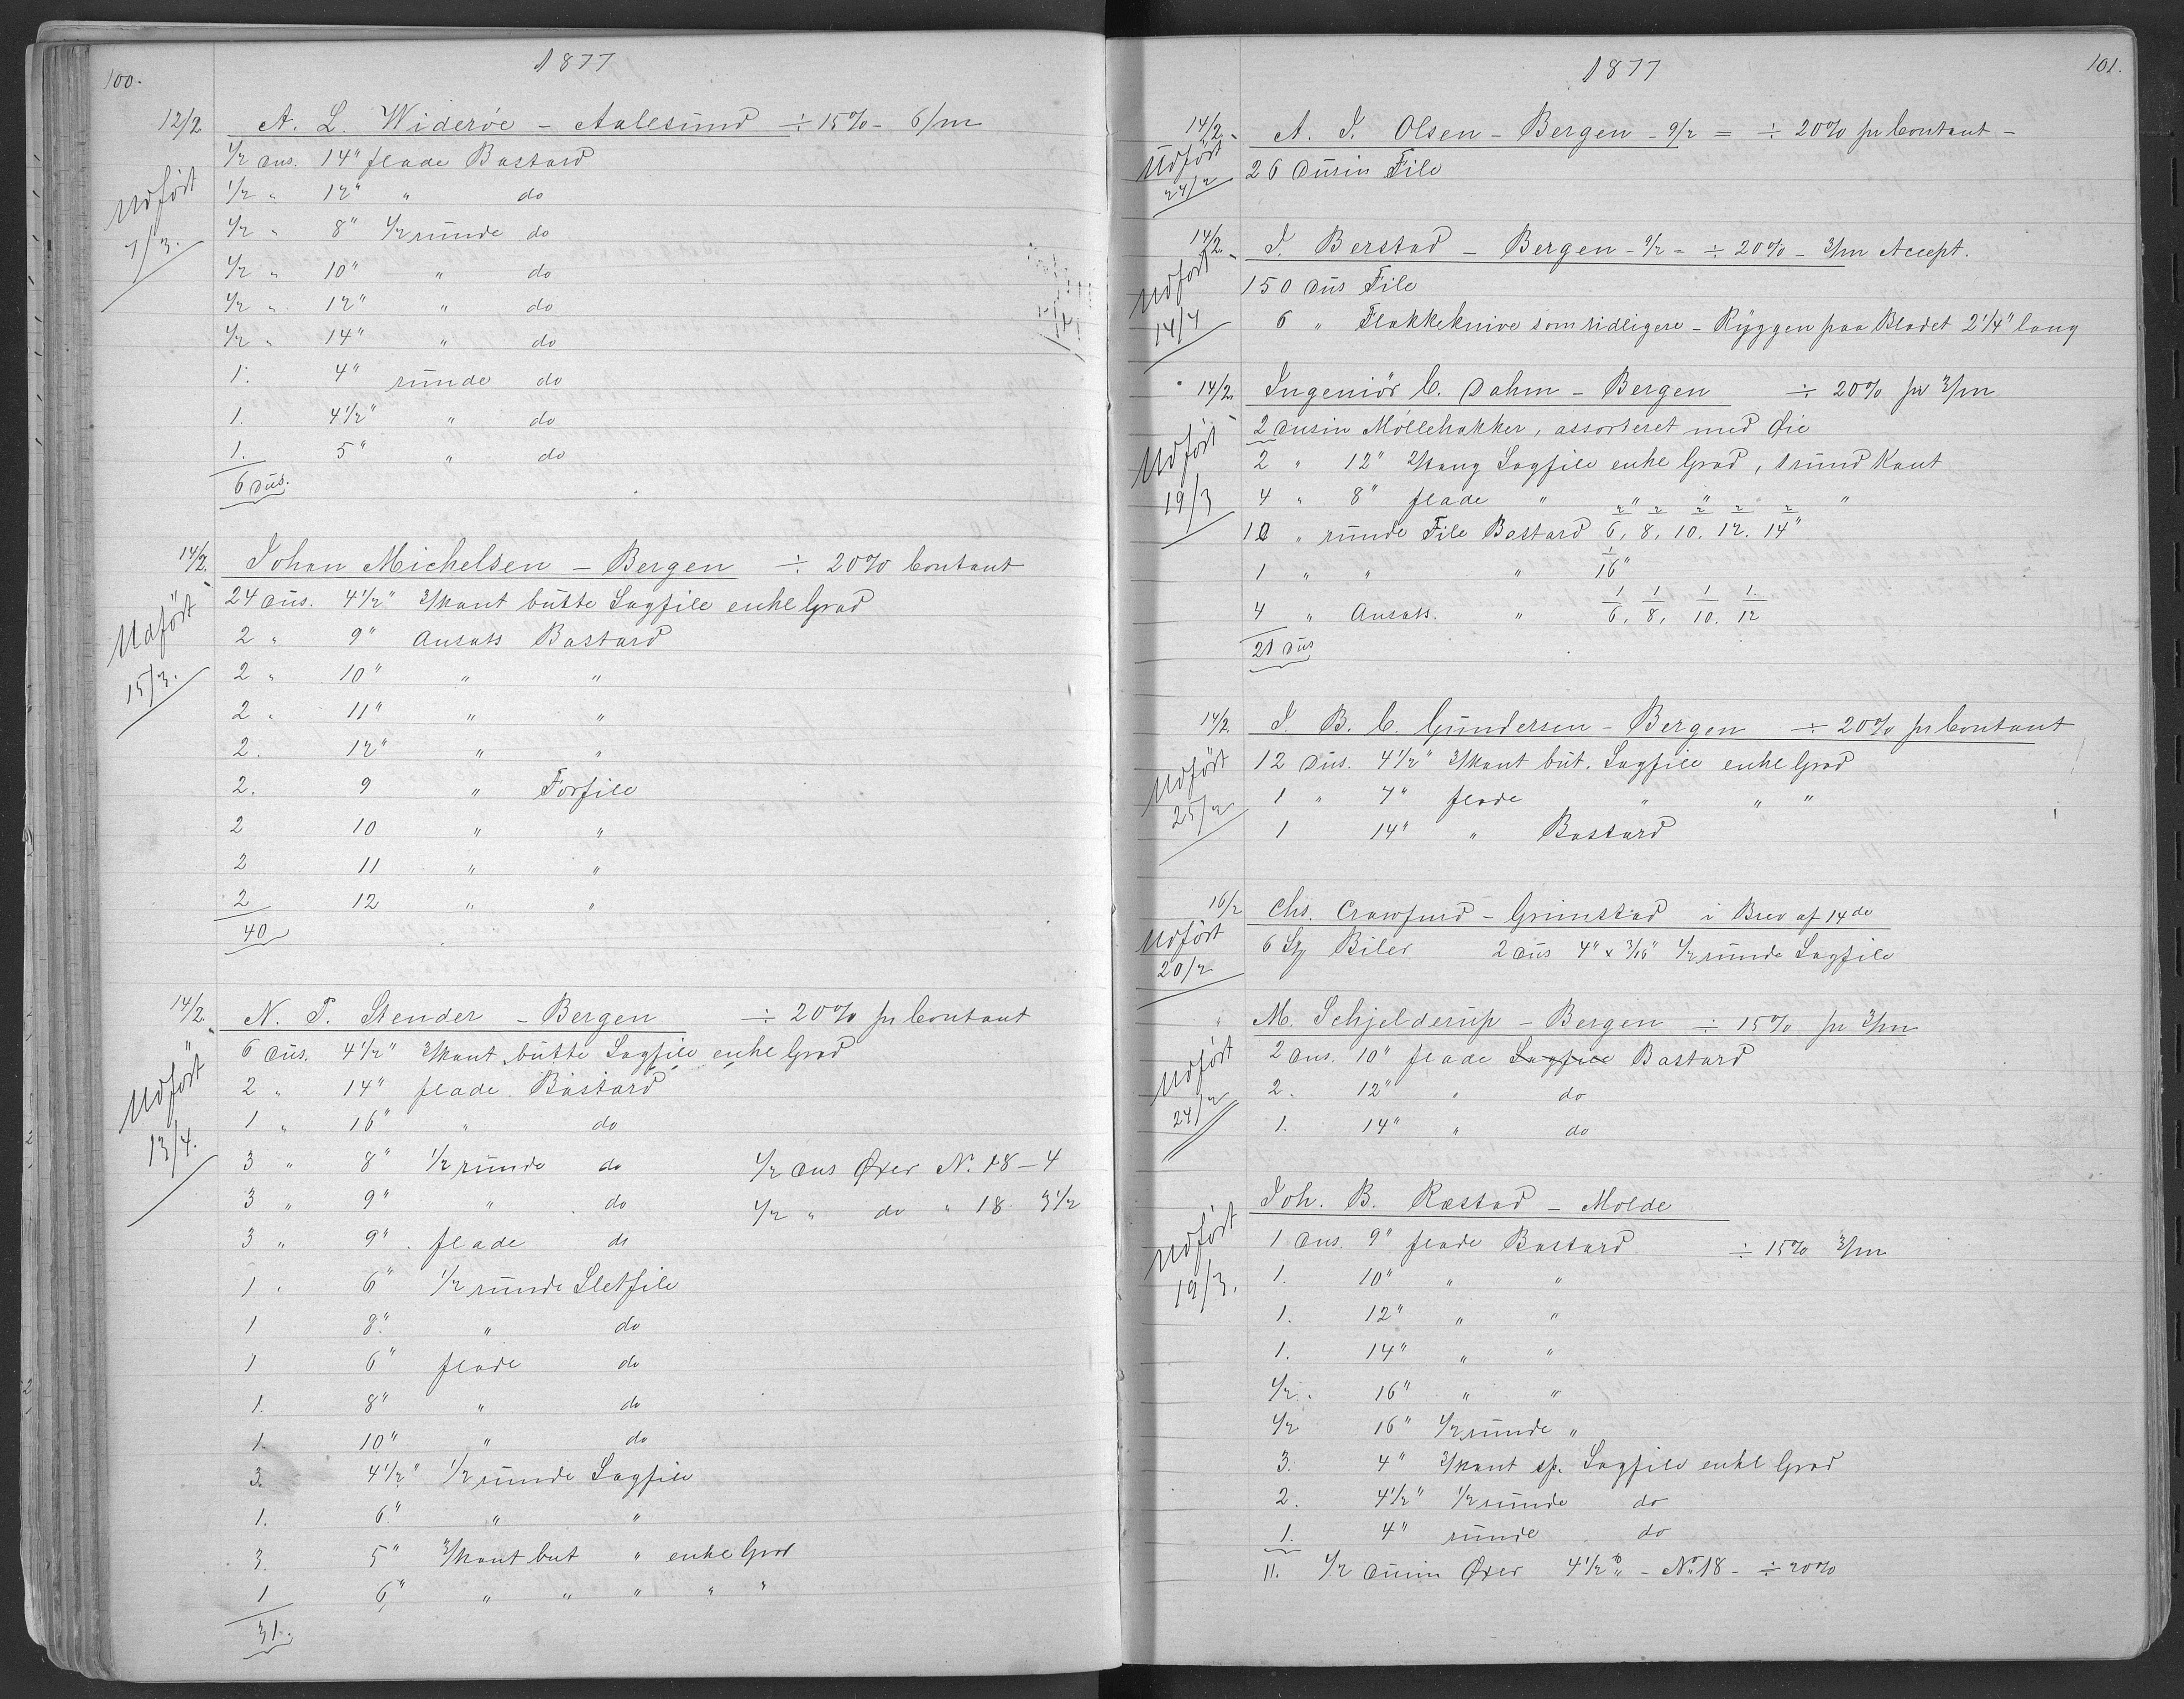 100.
1877
12/2 A. L. Wideröe - Aalesund ÷ 15% - 6/m
1/2 dus. 14" flade Bastard
Udfört 1/2 " 12" " do
7/3. 1/2 " 8" 1/2 runde do
1/2 " 10" " do
1/2 " 12" " do
1/2 " 14" " do
1. 4" runde do
1. 4 1/2" " do
1. 5" " do
6 dus.
14/2. Johan Michelsen - Bergen ÷ 20% Contant
24 dus. 4 1/2" 3/kant butte Sagfile enke Grad
Udfört 2 " 9" Ansats Bastard
15/3. 2 " 10" " "
2 " 11" " "
2. 12" " "
2. 9 " Forfile
2 10 " "
2 11 " "
2 12 " "
40
14/2. N. P. Stender - Bergen ÷ 20% pr Contant
" 6 dus. 4 1/2" 3/kant butte Sagfile enke Grad
Udfört 2 " 14" flade Bastard
13/4. 1 " 16" " do
3 " 8" 1/2 runde do 1/2 dus Öxer No. 18 - 4
3 " 9" " do 1/2 " do " 18 3 1/2
3 " 9" flade do
1 " 6" 1/2 runde Sletfile
1 8" " do
1 6" flade do
1. 8" " do
1. 10" " do
3. 4 1/2" 1/2 runde Sagfile
1. 6" " "
3. 5" 3/kant but " enke Grad
1 6" " " " " "
31.
1877
101.
14/2. A. J. Olsen - Bergen - 9/2 = ÷ 20% pr Contant -
Udfört 24/2 26 Dusin File
14/2. J. Berstad - Bergen - 9/2 - ÷ 20% - 3/m Accept.
Udfört 150 dus File
14/4 6 " Flakkeknive som tidligere - Ryggen paa Bladet 2 1/4" lang
14/2. Ingeniör C. Dahm - Bergen ÷ 20% pr 3/m
2 dusin Möllehakker, assorteret med Öie
Udfört 2 " 12" Sagfile enke Grad, 1 rund Kant
19/3 4 " 8" flade " " " "
10 " runde File Bastard 2/6, 2/8, 2/10, 2/12. 2/14"
1 " " " 1/16"
4 " Ansats. " 1/6, 1/8, 1/10. 1/12
21 dus
14/2. J. B. C. Gundersen - Bergen ÷ 20% pr Contant
Udfört 12 dus. 4 1/2" 3/kant but. Sagfile enke Grad
25/2 1 " 7" flade " " "
1 14" " Bastard
16/2 Chs. Crawfurd - Grimstad i Brev af 14de
Udfört 20/2 6 St Biler 2 dus 4" x 3/16" 1/2 runde Sagfile
M. Schjelderup - Bergen ÷ 15% pr 3/m
Udfört 2 dus. 10" flade Sagfile Bastard
24/2 2. 12" " do
1. 14" " do
Joh. B. Rœstad - Molde
Udfört 1 dus. 9" flade Bastard ÷ 15% 3/m
19/3. 1. 10" " "
1. 12" " "
1. 14" " "
1/2. 16" " "
1/2 16" 1/2 runde "
3. 4" 3/kant sp. Sagfile enke Grad
2. 4 1/2" 1/2 runde do
1. 4" runde do
11. 1/2 dusin Öxer 4 1/2 - No 18 - ÷ 20%